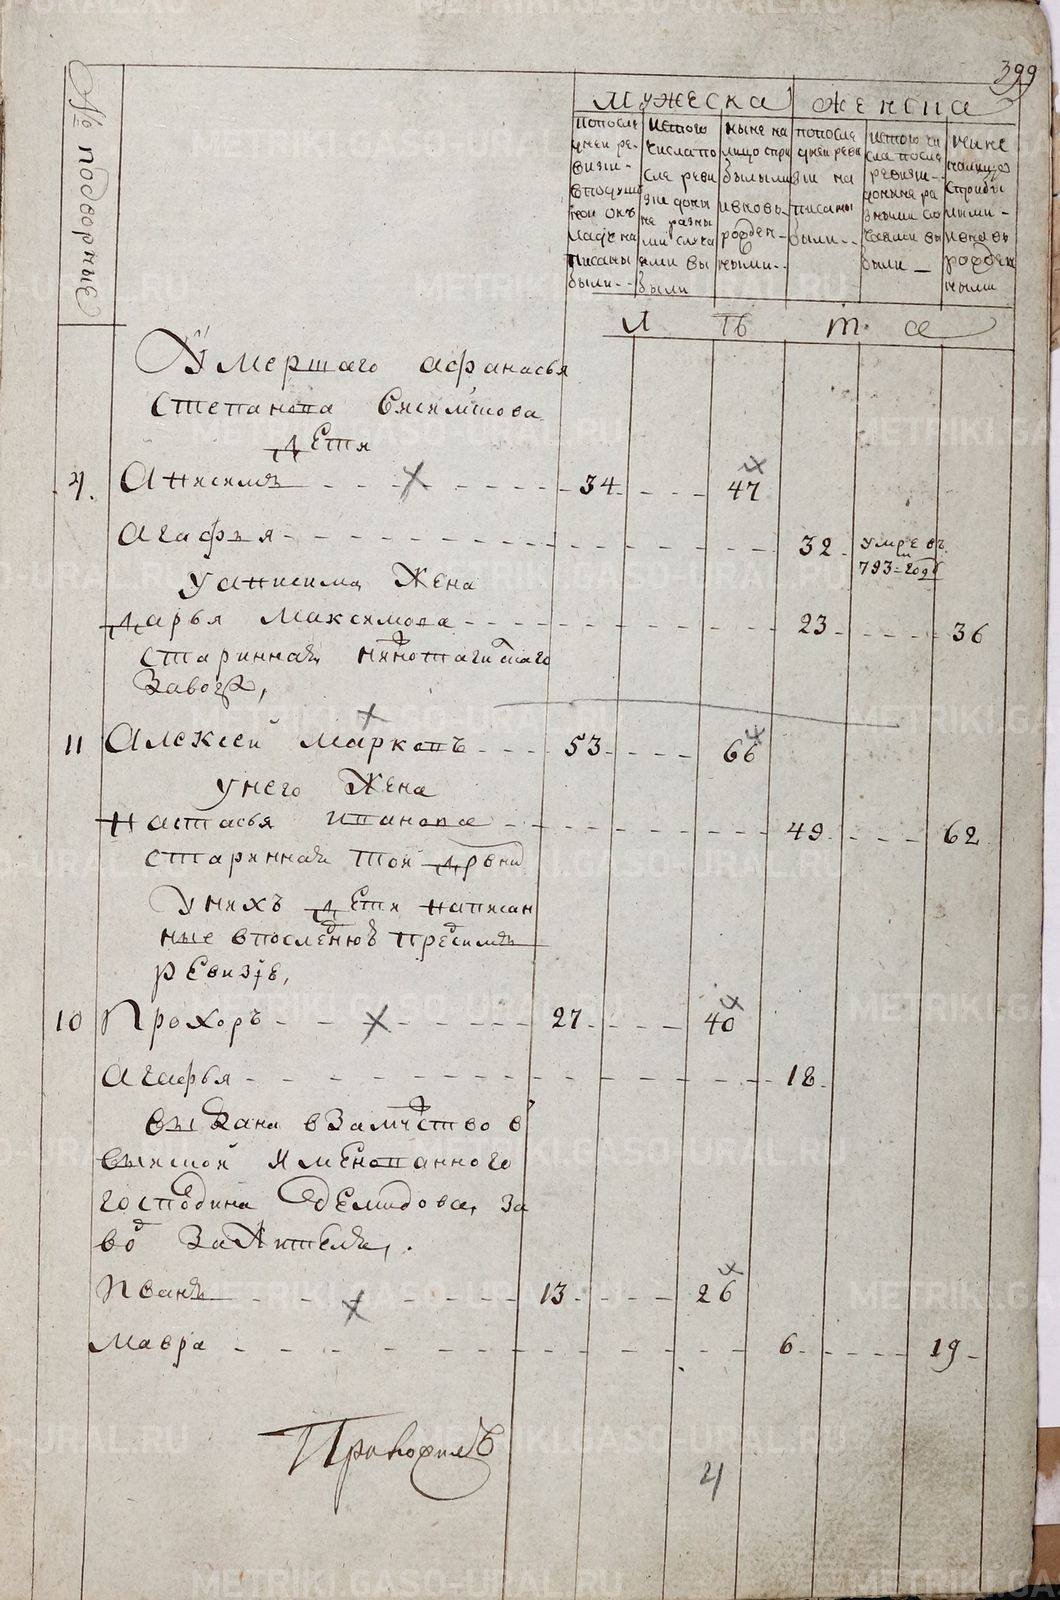 399
№ подворныЕ
МужЕска
жЕнска
попосле
дней ре-
визи-
вподуш
ном окъ
ладе на
писаны
были--
изтого
числа по
сле реви
зии доны
не разны
ми случа
ями вы
были
ныне на
лицо спри
былыми
ивновь
рожден-
ными--
попосле
дней реви
зии на
писаны
были--
изтого чи
сла после
ревизи-
доныне ра
зными слу
чаями вы
были —
ныне
налицо
сприбы
лыми-
ивновь
рожден
ными
Л Ѣ т а
УмЕршаго афанасья
стЕпанова
дЕти
4. Анисимъ 34 47
Агафья 32 умре въ
793= годѣ
уанисима ЖЕна
дарья Максимова 23 36
старинная нижнотагилскаго
Завода,
11 АлЕксЕй Марковъ 53 66
унего ЖЕна
Настасья ивановa 49 62
стариннаѧ той дрвни
Унихъ дЕти написан
ные впослѣднюю прЕдсимъ
рЕвизiю,
10 Прохоръ 27 40
Агафья 18
выдана взамужство в
вышЕй имЕнованного
господина дЕмидова, за
вод Зажителя,.
Иванъ 13 26
Мавра 6 19
4
METRIKI.GASO-URAL.RU